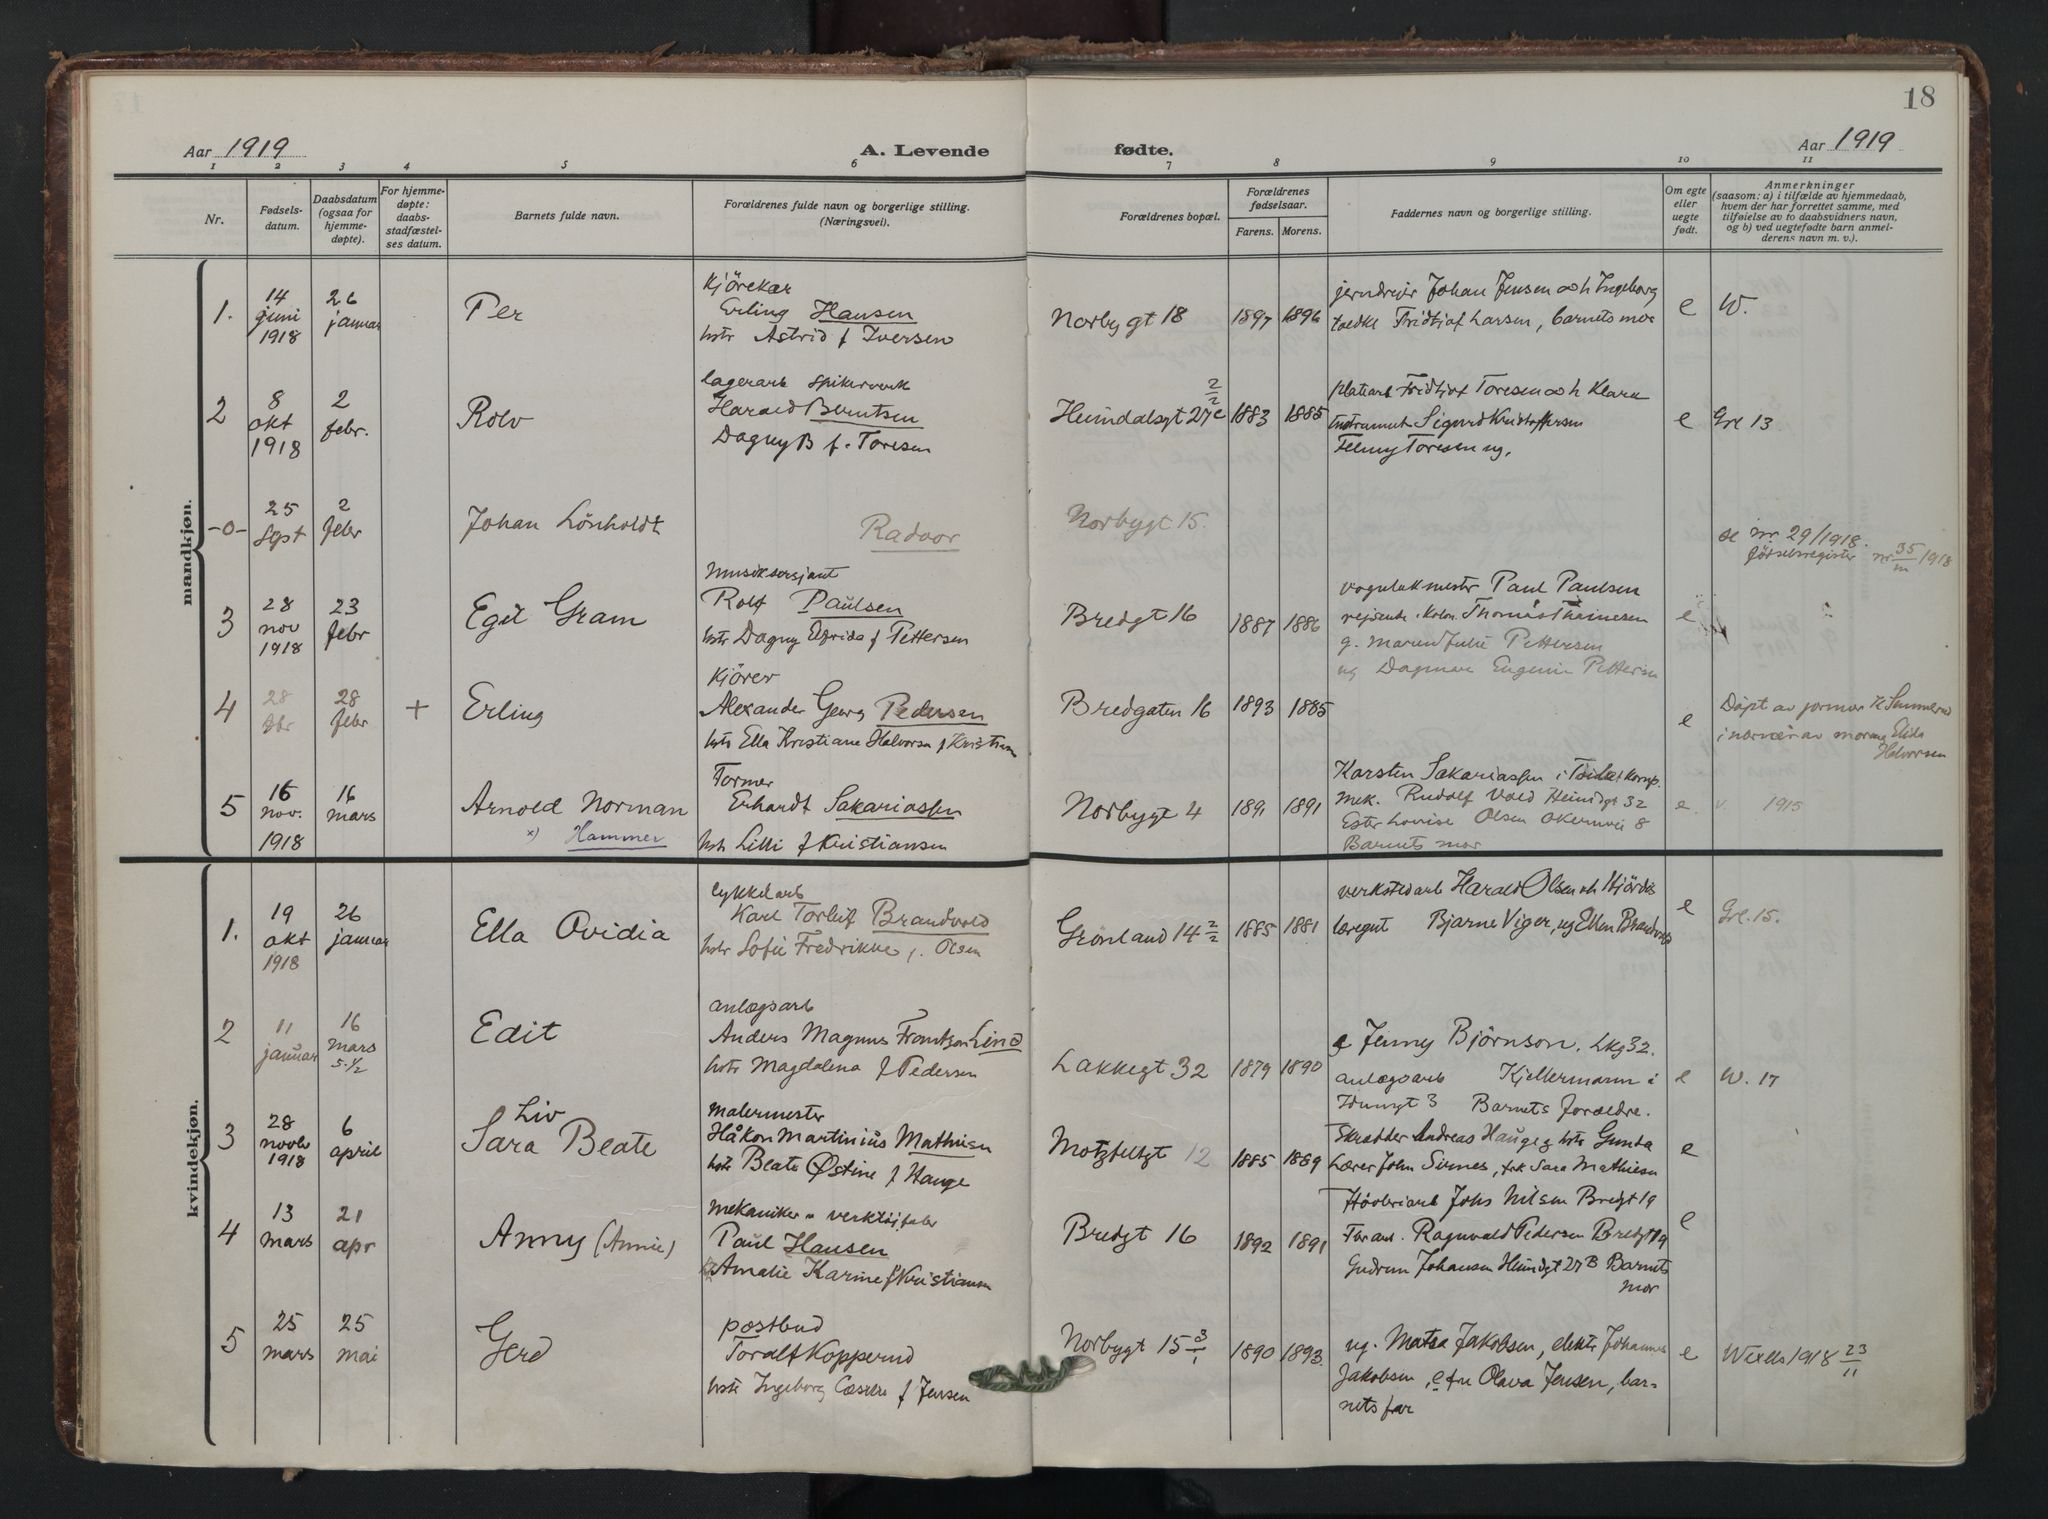 18
Aar 1919
A. Levende
fødte.
Aar 1919
1 2 3 4 5 6 7 8 9 10 11
Nr.
Fødsels-
datum.
Daabsdatum
(ogsaa for
hjemme-
døpte).
For hjemme-
døpte:
daabs-
stadfæstel-
ses datum.
Barnets fulde navn.
Forældrenes fulde navn og borgerlige stilling.
(Næringsvei).
Forældrenes bopæl.
Forældrenes
fødselsaar.
Farens. Morens.
Faddernes navn og borgerlige stilling.
Om egte
eller
uegte
født.
Anmerkninger
(saasom: a) i tilfælde av hjemmedaab,
hvem der har forrettet samme, med
tilføielse av to daabsvidners navn,
og b) ved uegtefødte barn anmel-
derens navn m. v.).
mandkjøn.
1.
14
juni
1918
26
januar
Per
Kjörekar
Erling Hansen
hstr Astrid f Iversen
Norbygt 18
1897
1896
Johan Jensen og h Ingeborg
Fridtjof Larsen, barnets mor
e
W.
2
8
okt
1918
2
febr.
Rolv
lagerarb spikerverk
Harald Berntsen
Dagny B f. Toresen
Heimdalsgt 27c 2/2
1883
1885
Fridtjof Toresen og h Klara
Instrument Sigurd Kristoffersen
Toresen ug.
e
Grl 13
-o-
25
Sept
2
febr
Johan Lönholdt
Radvor
Norbygt 15.
se nr 29/1918.
födselsregister nr 35/m 1918
3
28
nov
1918
23
febr
Egil Gram
Rolf Paulsen
hstr Dagny Elfrida f Pettersen
Bredgt 16
1887
1886
Paul Paulsen
g. Maren Julie Pettersen
ug Dagmar Eugenie Pettersen
e
4
28
fbr
28
febr
+
Erling
Kjörer
Alexander Georg Pedersen
hstr Ella Kristiane Halvorsen f Kristiansen
Bredgaten 16
1893
1885
e
Döpt av jormor K
i nærvær av morens Elida
Halvorsen
5
16
nov.
1918
16
mars
Arnold Norman
x) Hammer
Former
Erhardt Sakariassen
hstr Lilli f Kristiansen
Norbygt 4
1891
1891
Karsten Sakariassen
mek. Rudolf Vold Heimdgt 32
Ester Lovise Olsen Okernvei 8
Barnets mor
e.
v. 1915
kvindekjøn.
1.
19
okt
1918
26
januar
Ella Ovidia
lykkelarb
Karl Torleif Brandvold
hstr Sofie Fredrikke f. Olsen
Grönland 14 2/2
1885
1881
verkstedarb Harald Olsen oh Hjördis
læregut Bjarne Viger, ug Ellen Brandvold
e
Grl. 15.
2
11
januar
16
mars
5.1/2
Edit
anlægsarb
Anders Magnus Frantzen Lind
hstr Magdalena f Pedersen
Lakkegt 32
1879
1890
e Jenny Björnson. Lkg 32.
anlægsarb Kjellermann i
Idunsgt 3 Barnets foræeldre.
e
W. 17
3
28
novbr
1918
6
april
Liv
Sara Beate
Malermester
Håkon Martinius Mathisen
hstr Beate Østine f Hauge
Motzfeltgt 12
1885
1889
Skrædder Andreas Hauge g hstr Gunda
Lærer John Sirnes, frk Sara Mathiesen
e
4
13
mars
21
apr
Anny (Annie)
Mekaniker
Paul Hansen
Amalie Karine f Kristiansen
Bredgt 16
1892
1891
Høvleriarb Johs Nilsen Bredgt 19
Ragnvald Pedersen Bredgt 19
Gudrun Johansen Heimdgt 27B Barnets
mor
e
5
25
mars
25
mai
Gerd
postbud
Toralf Kopperud
hstr Ingeborg f Jensen
Norbygt 15 3/1
1890
1893.
ug. Jakobsen, elektr Johannes
Jakobsen, e fru Olava Jensen, bar-
nets far
e
Wexels 1918 23/11